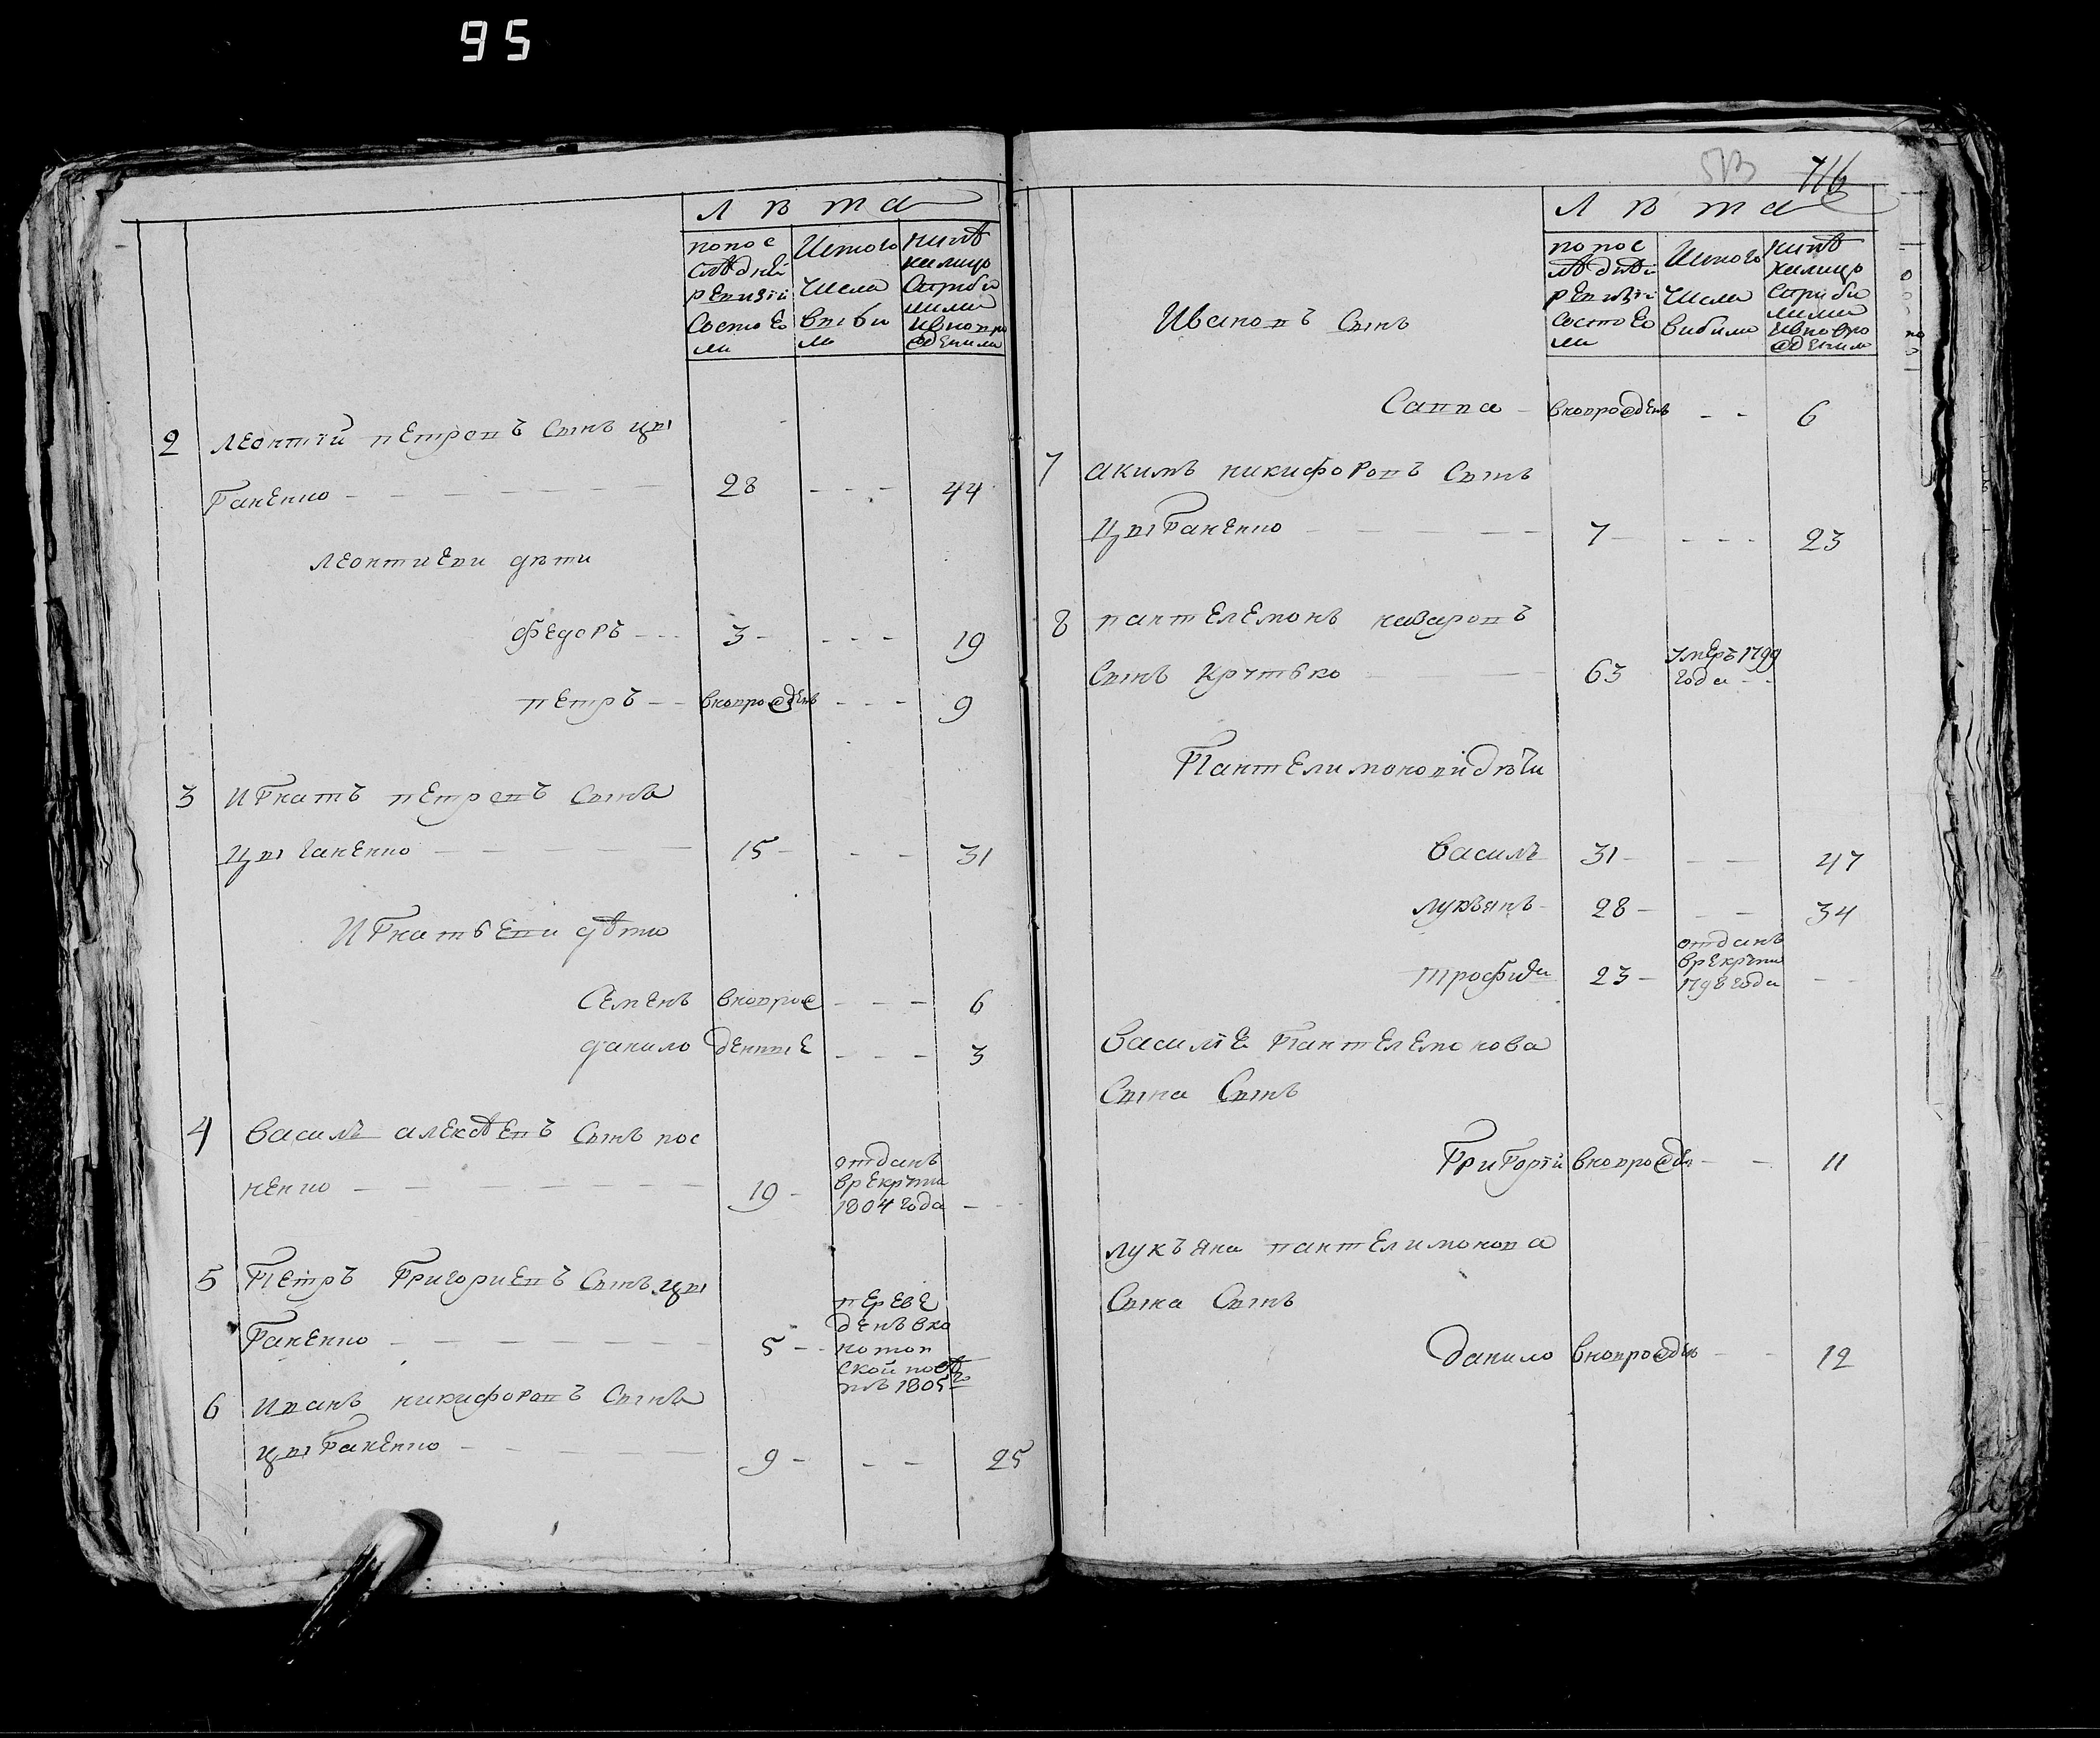 95
Л ѣ т а
попос
слѣдней
ревизіи
состояло
ли
Истого
числа
выбы
ло
нынѣ
налицо
сприбы
лыми
иноворо
жденыма
2 леонтій петровъ сынъ цы
ганенко 28 44
леонтиеви дѣти
федоръ 3 19
петръ вноворожденъ 9
3 Игнатъ петровъ сынъ
цыганенко 15 31
Игнатьеви дѣти
Семенъ вноворо 6
данило жденные 3
4 Василъ алексѣевъ сынъ пос
ненко 19 отданъ
врекруты
1804 года
5 Петръ Григориевъ сынъ цы
ганенко 5 переве
денъ вко
нотоп
ской повѣ
тъ 1805го
6 иванъ никифоровъ сынъ
цыганенко 9 25
513 716
Л ѣ т а
попос
лѣднѣй
ревизіи
состояло
ли
Истого
числа
выбыли
нынѣ
налицо
сприбы
лыми
иновро
жденым
Ивановъ Сынъ
Савва вноворожденъ 6
7 акимъ никифоровъ Сынъ
цыганенко 7 23
8 пантелемонъ назаровъ
Сынъ крутько 63 умеръ 1799
года
Пантелимонови дѣти
Василъ 31 47
лукъянъ 28 34
трофим 23 отданъ
врекруты
1798 года
Василіе Пантелемонова
Сына Сынъ
Григорій вноворожде 11
лукъяна пантелимонова
Сына Сынъ
данило вноворожденъ 12